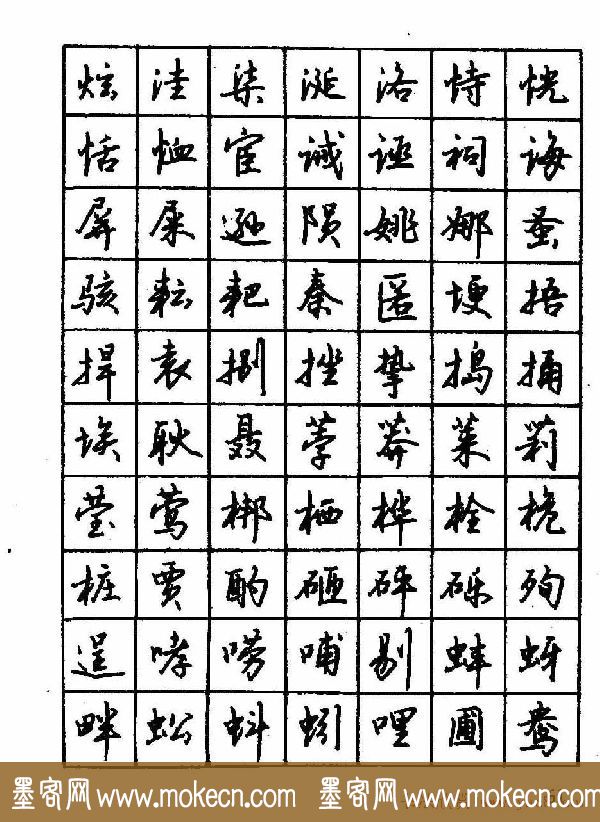 炫洼柒涎洛恃恍
恬恤宦诫诬祠诲
屏屎逊陨姚娜蚤
骇耘耙秦匿埂捂
捍袁捌挫挚捣捅
埃耿聂荸莽莱莉
莹莺梆栖桦栓桅
桩贾酌砸砰砾殉
逞哮唠哺剔蚌蚜
畔蚣蚪蚓哩圃鸯
墨客网 www.mokecn.com 墨客网 www.mokecn.com